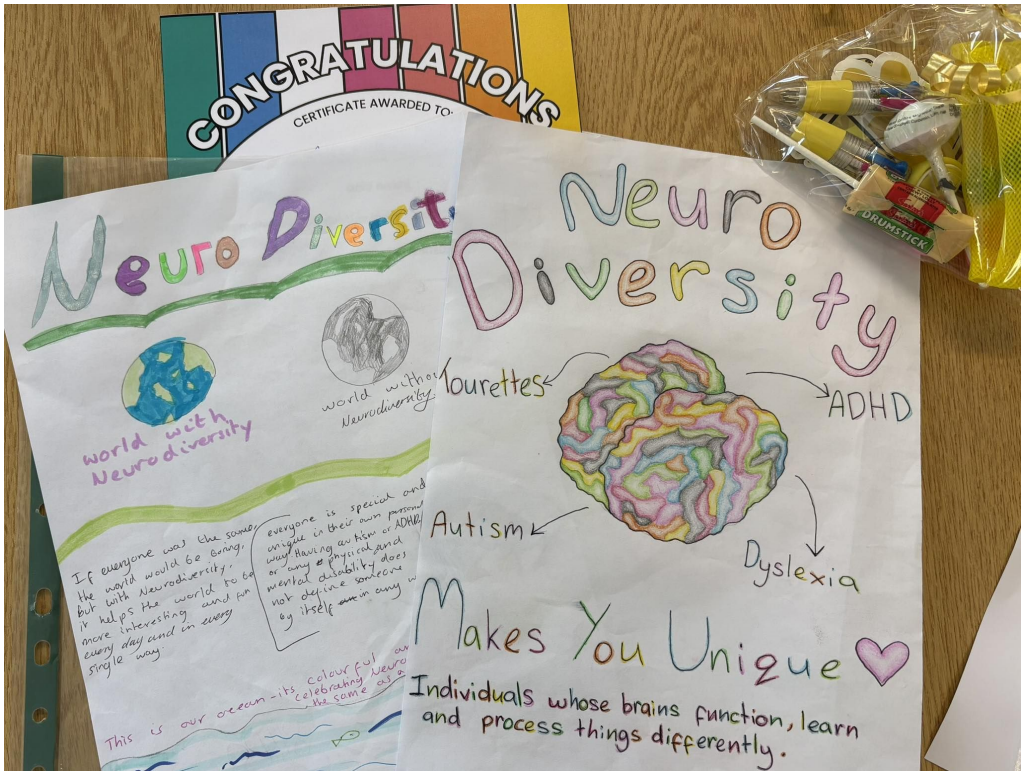 CONGRATULATIONS
CERTIFICATE AWARDED TO:
Neuro Diversit
world with
Neurodiversity
world witho
Neurodiversity
If everyone was the same,
the world would be boring,
but with Neurodiversity.
it helps the world to be
more interesting and fun
every day and in every
single way.
everyone is special and
unique in their own personal
way. Having autism or ADHD,
or any physical and
mental disability does
not define someone
by itself in any w
This is our ocean-its colourful an
celebrating Neuro
the same as a
Neuro
Diversity
Tourettes
ADHD
Autism
Dyslexia
Makes You Unique
Individuals whose brains function, learn
and process things differently.
DRUMSTICK